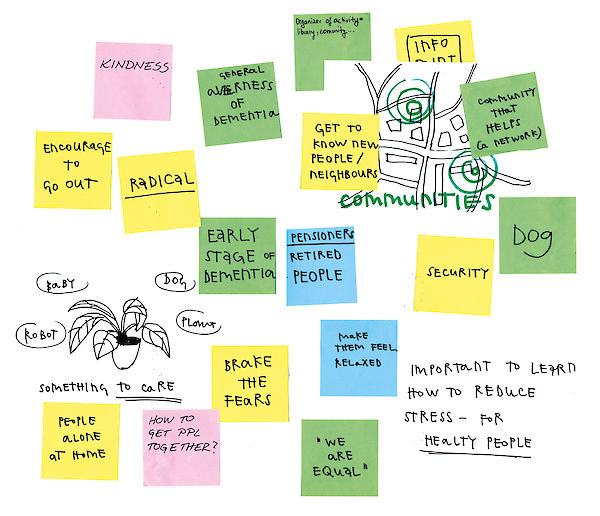 Organizer of activity=
library, comunity...
INFO
KINDNESS
GENERAL
AWERNESS
OF
DEMENTIA
COMMUNITY
THAT
HELPS
(a NETWORK)
ENCOURAGE
TO
GO OUT
RADICAL
GET TO
KNOW NEW
PEOPLE/
NEIGHBOURS
COMMUNITIES
EARLY
STAGE OF
DEMENTIA
PENSIONERS
RETIRED
PEOPLE
DOG
SECURITY
BABY
DOG
ROBOT
PLANT
SOMETHING TO CARE
MAKE
THEM FEEL
RELAXED
BRAKE
THE
FEARS
IMPORTANT TO LEARN
HOW TO REDUCE
STRESS - FOR
HEALTY PEOPLE
PEOPLE
ALONE
AT HOME
HOW TO
GET PPL
TOGETHER?
"WE
ARE
EQUAL"